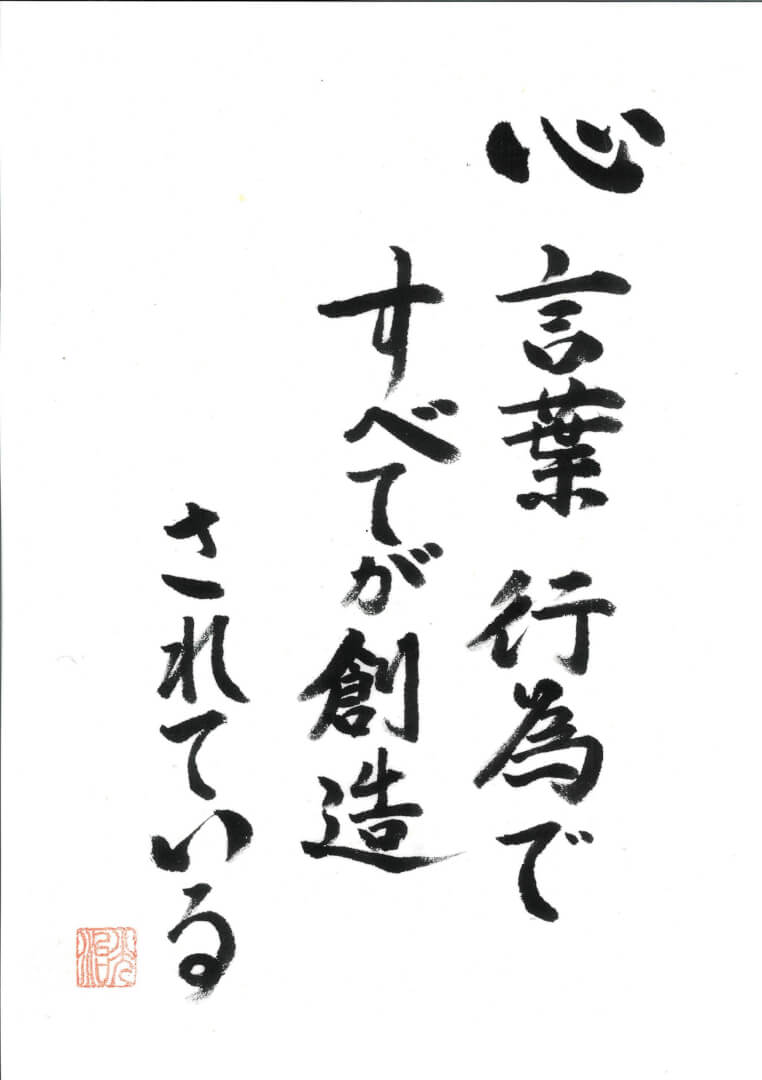 心 言葉 行為で
すべてが創造
されている